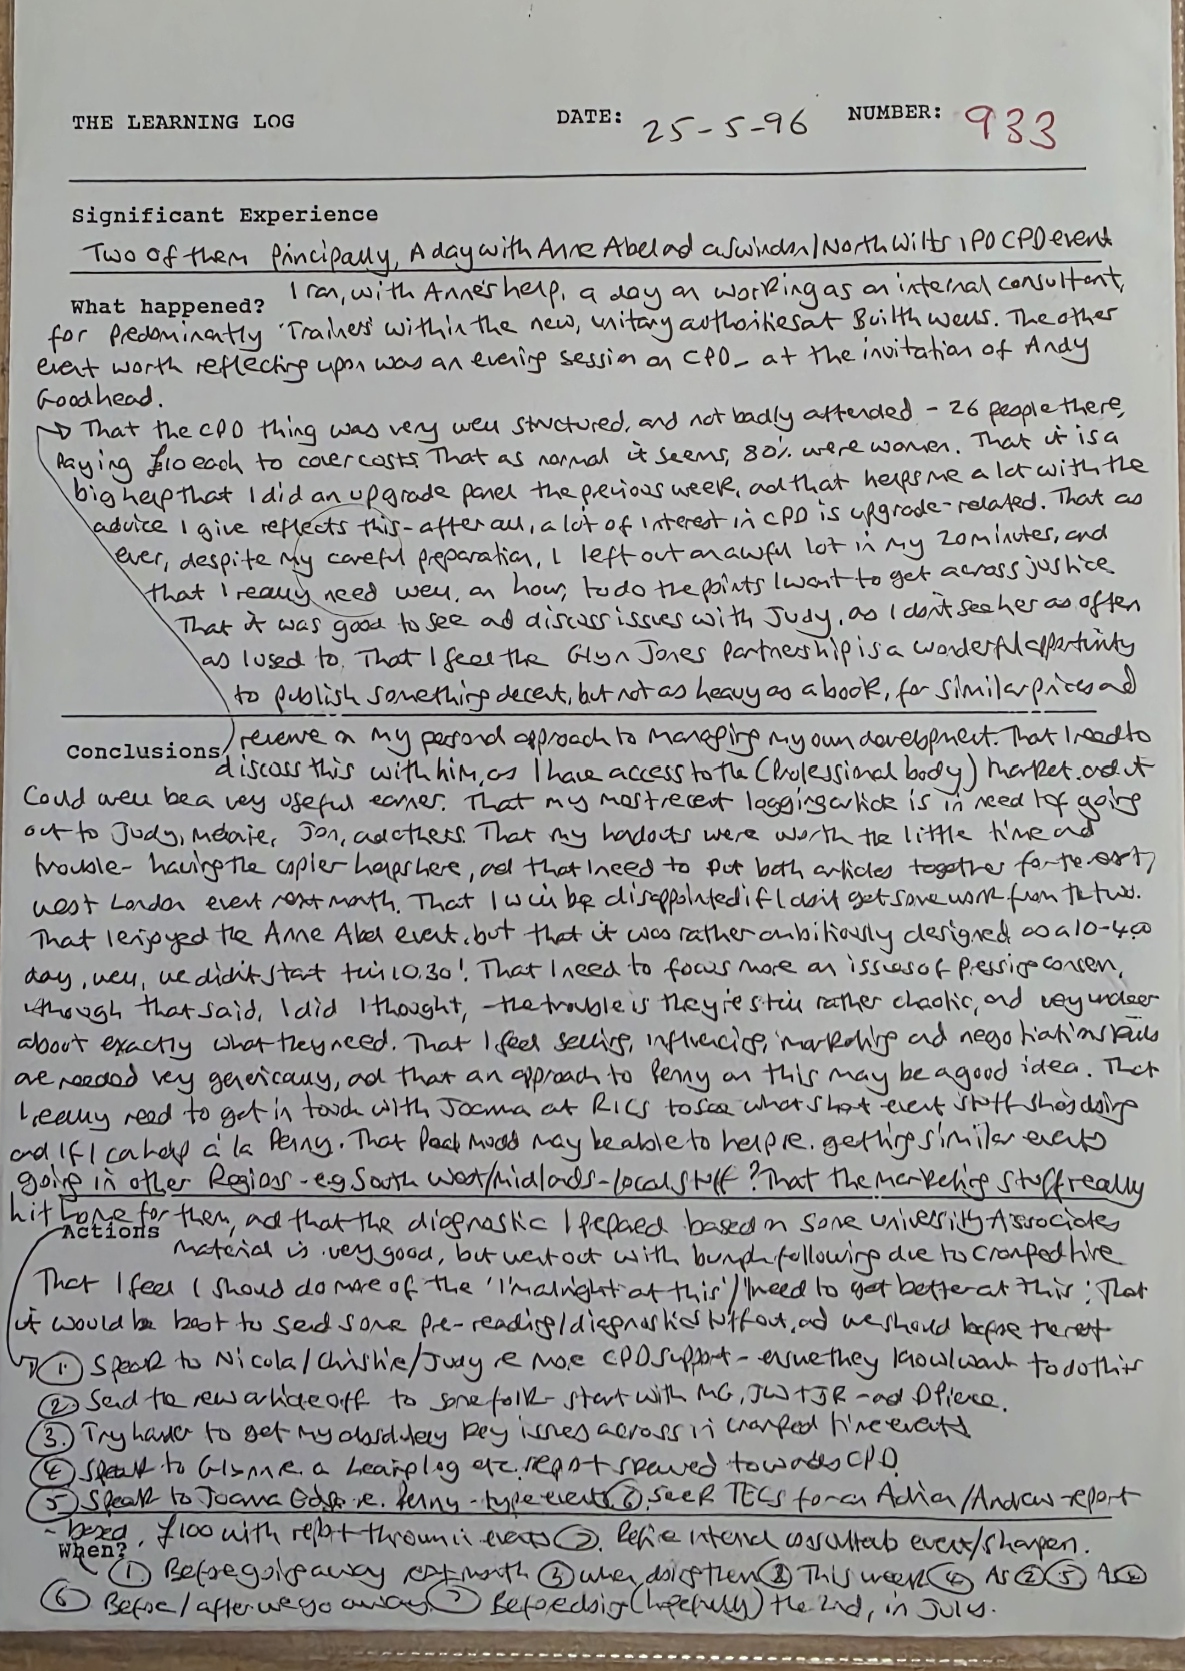 THE LEARNING LOG DATE: 25-5-96 NUMBER: 933
Significant Experience
Two of them principally, A day with Anne Abel ad a Swindon/North Wilts IPD CPD event
What happened? I ran, with Anne's help, a day on working as an internal consultant,
for predominantly 'Trainers' within the new, unitary authorities at Builth Wells. The other
event worth reflecting upon was an evening session on CPD - at the invitation of Andy
Goodhead.
→ That the CPD thing was very well structured, and not badly attended - 26 people there,
paying £10 each to cover costs. That as normal it seems, 80% were women. That it is a
big help that I did an upgrade panel the previous week, ad that helps me a lot with the
advice I give reflects this - after all, a lot of interest in CPD is upgrade-related. That as
ever, despite my careful preparation, I left out an awful lot in my 20 minutes, and
that I really need well, an hour, to do the points I want to get across justice
That it was good to see ad discuss issues with Judy, as I don't see her as often
as I used to. That I feel the Glyn Jones Partnership is a wonderful opportunity
to publish something decent, but not as heavy as a book, for similar prices ad
revenue on my personal approach to managing my own development. That I need to
Conclusions discuss this with him, as I have access to the (Professional body) market, ad it
could well be a very useful earner. That my most recent logging article is in need of going
out to Judy, Jon, ad others. That my handouts were worth the little time ad
trouble - having the copier helps here, ad that I need to put both articles together for the
West London event next month. That I will be disappointed if I don't get some work from the two.
That I enjoyed the Anne Abel event, but that it was rather ambitiously designed as a 10-4.00
day, well, we didn't start till 10.30! That I need to focus more on issues of pressing concern,
though that said, I did I thought, - the trouble is they're still rather chaotic, and very unclear
about exactly what they need. That I feel selling, influencing, marketing ad negotiation skills
are needed very generically, ad that an approach to Penny on this may be a good idea. That
I really need to get in touch with Joanna at RICS to see what short event stuff she's doing
and if I can help à la Penny. That may be able to help re. getting similar events
going in other Regions - e.g South West/Midlands - local stuff? That the marketing stuff really
hit home for them, ad that the diagnostic I prepared based on some University Associates
Actions material is very good, but went out with bumph following due to cramped time
That I feel I should do more of the 'I'm alright at this'/'I need to get better at this'. That
it would be best to send some pre-reading/diagnostic stuff out, ad we should before the next
① Speak to Nicola/Christie/Judy re more CPD support - ensure they know I want to do this
② Send the new article off to some folk - start with MG, JW + JR - ad D Pierce.
③ Try harder to get my absolutely key issues across in cramped time events
④ Speak to Glyn re. a Learning log etc. report skewed towards CPD.
⑤ Speak to Joanna re. Penny-type events ⑥ Seek TECs for an Adrian/Andrew-report
- based, £100 with report thrown in events ⑦. Refine internal consultants event/sharpen.
When?
① Before going away next month ③ when doing them ② This week ④ As ② ⑤ As ②
⑥ Before/after we go away ⑦ Before doing (hopefully) the 2nd, in July.